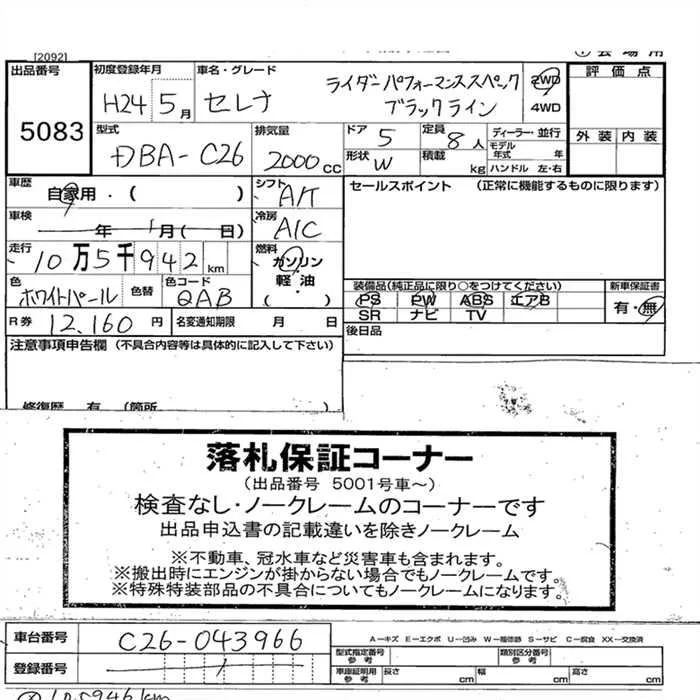 [2092]
出品番号
5083
初度登録年月
H24 5月
車名・グレード
セレナ
ライダーパフォーマンススペック
ブラックライン
2WD
4WD
評価点
外装 内装
型式
DBA-C26
排気量
2000cc
ドア
5
定員
8人
形状
W
積載
kg
ディーラー・並行
モデル
年式 年
ハンドル 左・右
車歴
自家用・( )
シフト
A/T
車検
年 月( 日)
冷房
A/C
走行
10万5千942km
燃料
ガソリン
軽・油
( )
色
ホワイトパール
色替
色コード
QAB
R券 12,160円
名変通知期限 月 日
セールスポイント (正常に機能するものに限ります)
装備品(純正品に限り○をつけてください)
PS PW ABS エアB
SR ナビ TV
新車保証書
有・無
後日品
注意事項申告欄 (不具合内容等は具体的に記入して下さい)
修復歴 有 (箇所
落札保証コーナー
(出品番号 5001号車~)
検査なし・ノークレームのコーナーです
出品申込書の記載違いを除きノークレーム
※不動車、冠水車など災害車も含まれます。
※搬出時にエンジンが掛からない場合でもノークレームです。
※特殊特装部品の不具合についてもノークレームになります。
車台番号
C26-043966
登録番号
A-キズ E-エクボ U-凹み W-補修跡 S-サビ C-腐食 XX-交換済
型式指定番号
参考
類別区分番号
参考
車庫証明用
参考
長さ cm
幅 cm
高さ cm